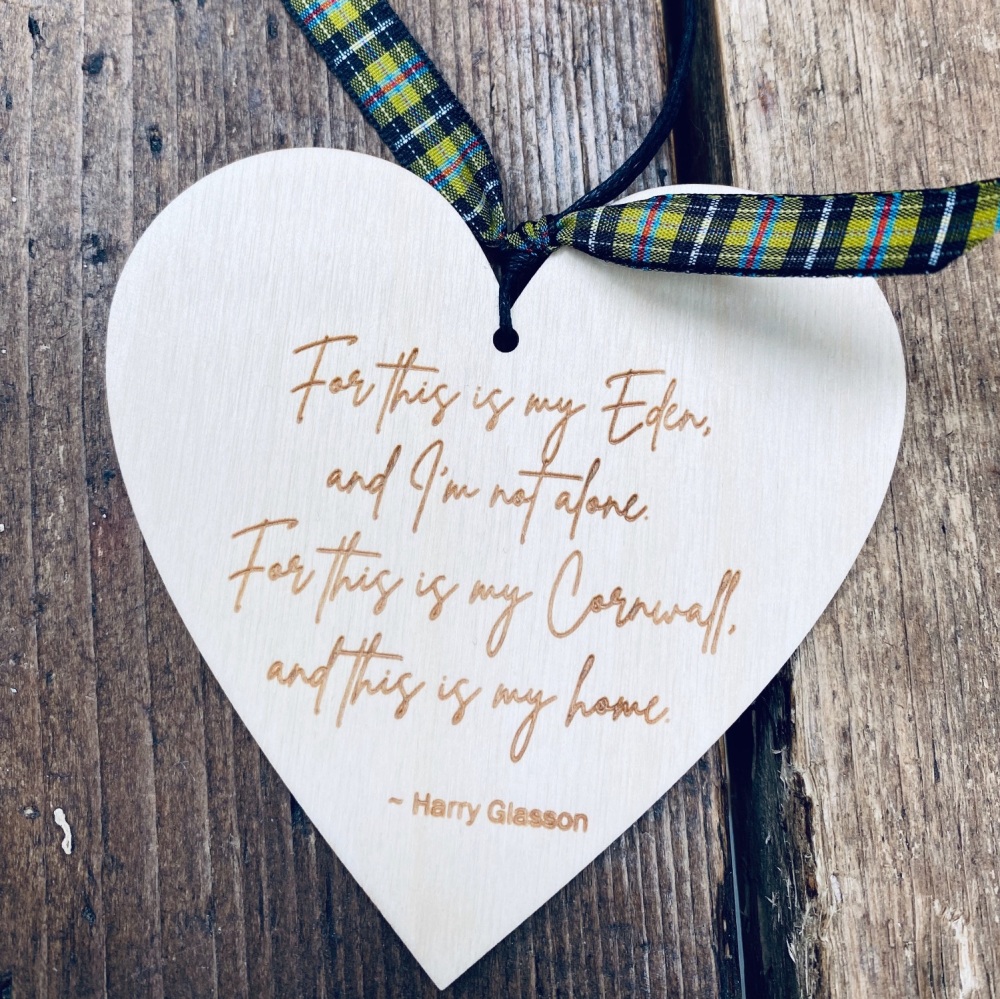 For this is my Eden,
and I'm not alone.
For this is my Cornwall,
and this is my home.
~ Harry Glasson